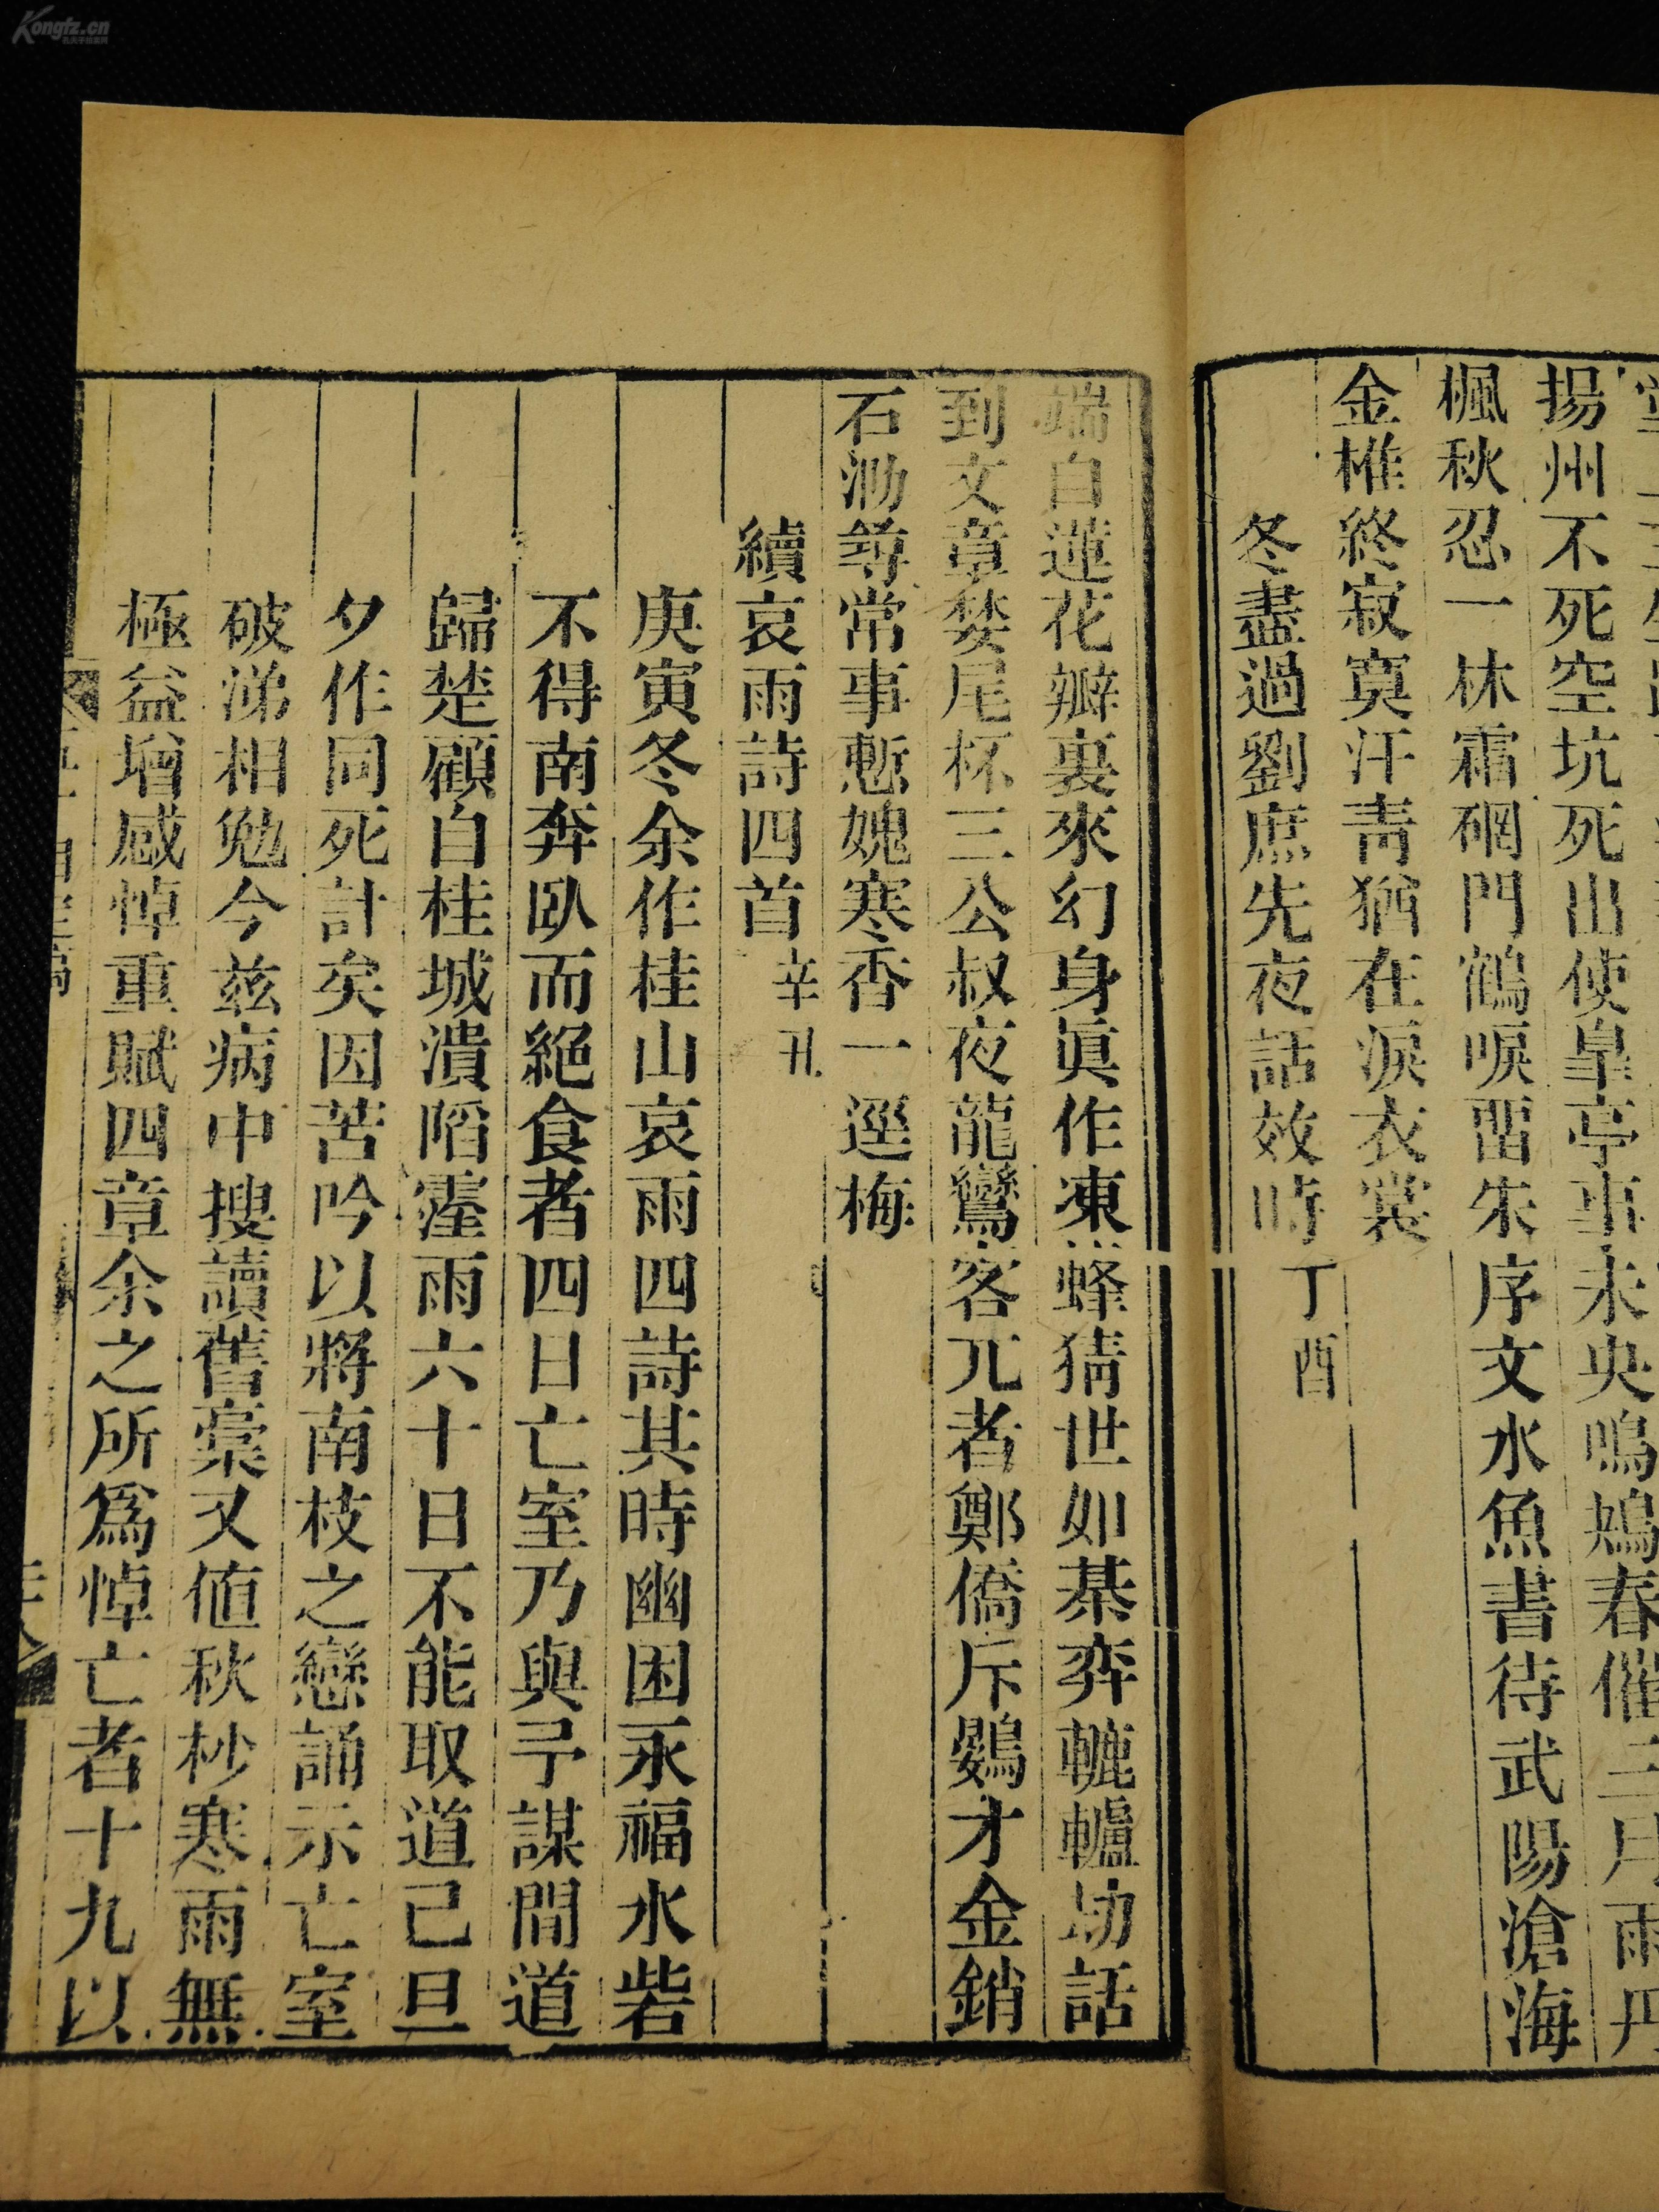 揚州不死空坑死出使皐亭事未央鳴鴂春催三月雨丹
楓秋忍一林霜碙門鶴唳畱朱序文水魚書待武陽滄海
金椎終寂寞汗靑猶在淚衣裳
冬盡過劉庶先夜話效時丁酉
端白蓮花瓣裏來幻身眞作凍蜂猜世如棊弈轆轤劫話
到文章婪尾杯三公叔夜龍鸞客兀者鄭僑斥鷃才金銷
石泐尊常事慙媿寒香一逕梅
續哀雨詩四首辛丑
庚寅冬余作桂山哀雨四詩其時幽困永福水砦
不得南奔臥而絕食者四日亡室乃與予謀間道
歸楚顧自桂城潰陷霪雨六十日不能取道已旦
夕作同死計矣因苦吟以將南枝之戀誦示亡室
破涕相勉今茲病中搜讀舊稾又値秋杪寒雨無
極益增感悼重賦四章余之所爲悼亡者十九以
Kongfz.cn